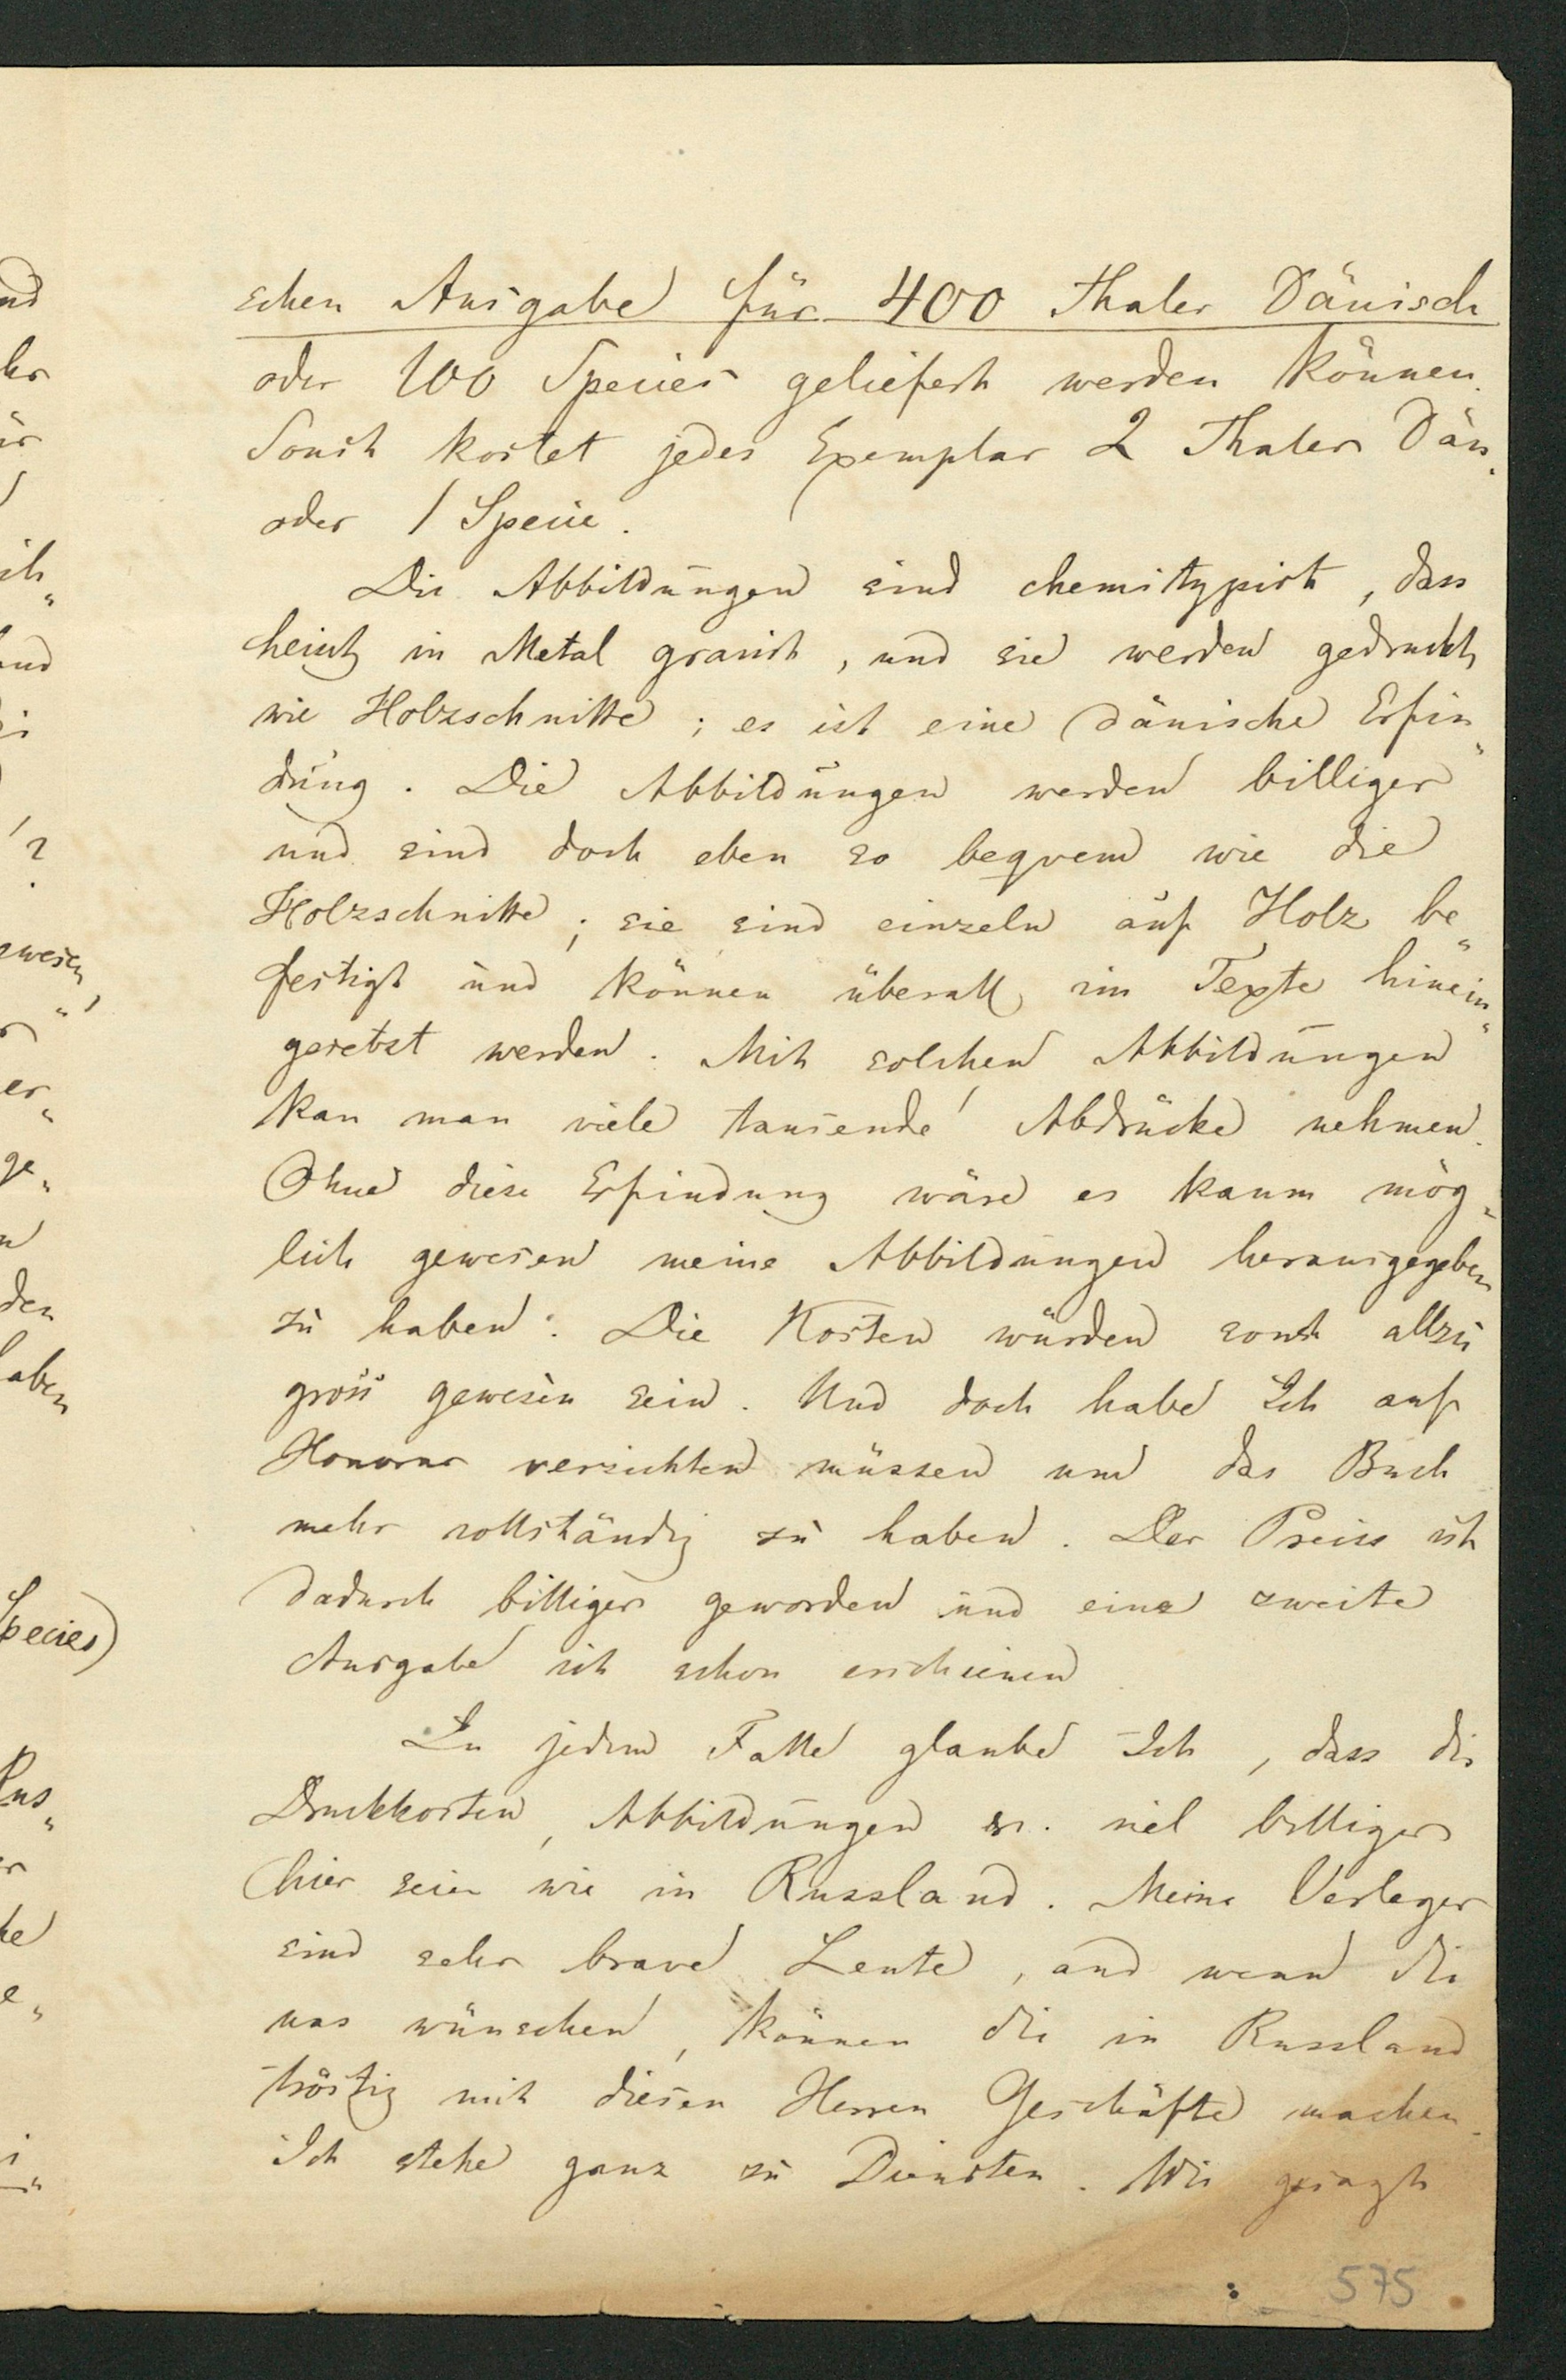 schen Ausgabe für 400 Thaler Dänisch
oder 100 Species geliefert werden können.
Sonst kostet jedes Exemplar 2 Thaler Dän.
oder 1 Specie.
Die Abbildungen sind chemitypirt, dass
heisst in Metal gravirt, und sie werden gedruckt
wie Holzschnitte; es ist eine dänische Erfin„
dung. Die Abbildungen werden billiger
und sind doch eben so beqvem wie die
Holzschnitte; sie sind einzeln auf Holz be„
festigt und können überall im Texte hinein„
gesetzt werden. Mit solchen Abbildungen
kan man viele tausende Abdrücke nehmen.
Ohne diese Erfindung wäre es kaum mög„
lich gewesen meine Abbildungen herausgegeben
zu haben: Die Kosten würden sonst allzu
gross gewesen sein. Und doch habe Ich auf
Honorar verzichten müssen um das Buch
mehr vollständig zu haben. Der Preiss ist
dadurch billiger geworden und eine zweite
Ausgabe ist schon erschienen
In jedem Falle glaube Ich, dass die
Druckkosten, Abbildungen viel billiger
hier seien wie in Russland. Meine Verleger
sind sehr brave Leute, and wenn die
was wünschen, können die in Russland
tröstig mit diesen Herren Geschäfte machen.
Ich stehe ganz zu Diensten. Wie gesagt
575
nd
ür
?
er„
ge„
den
haben
Species)
Rus„